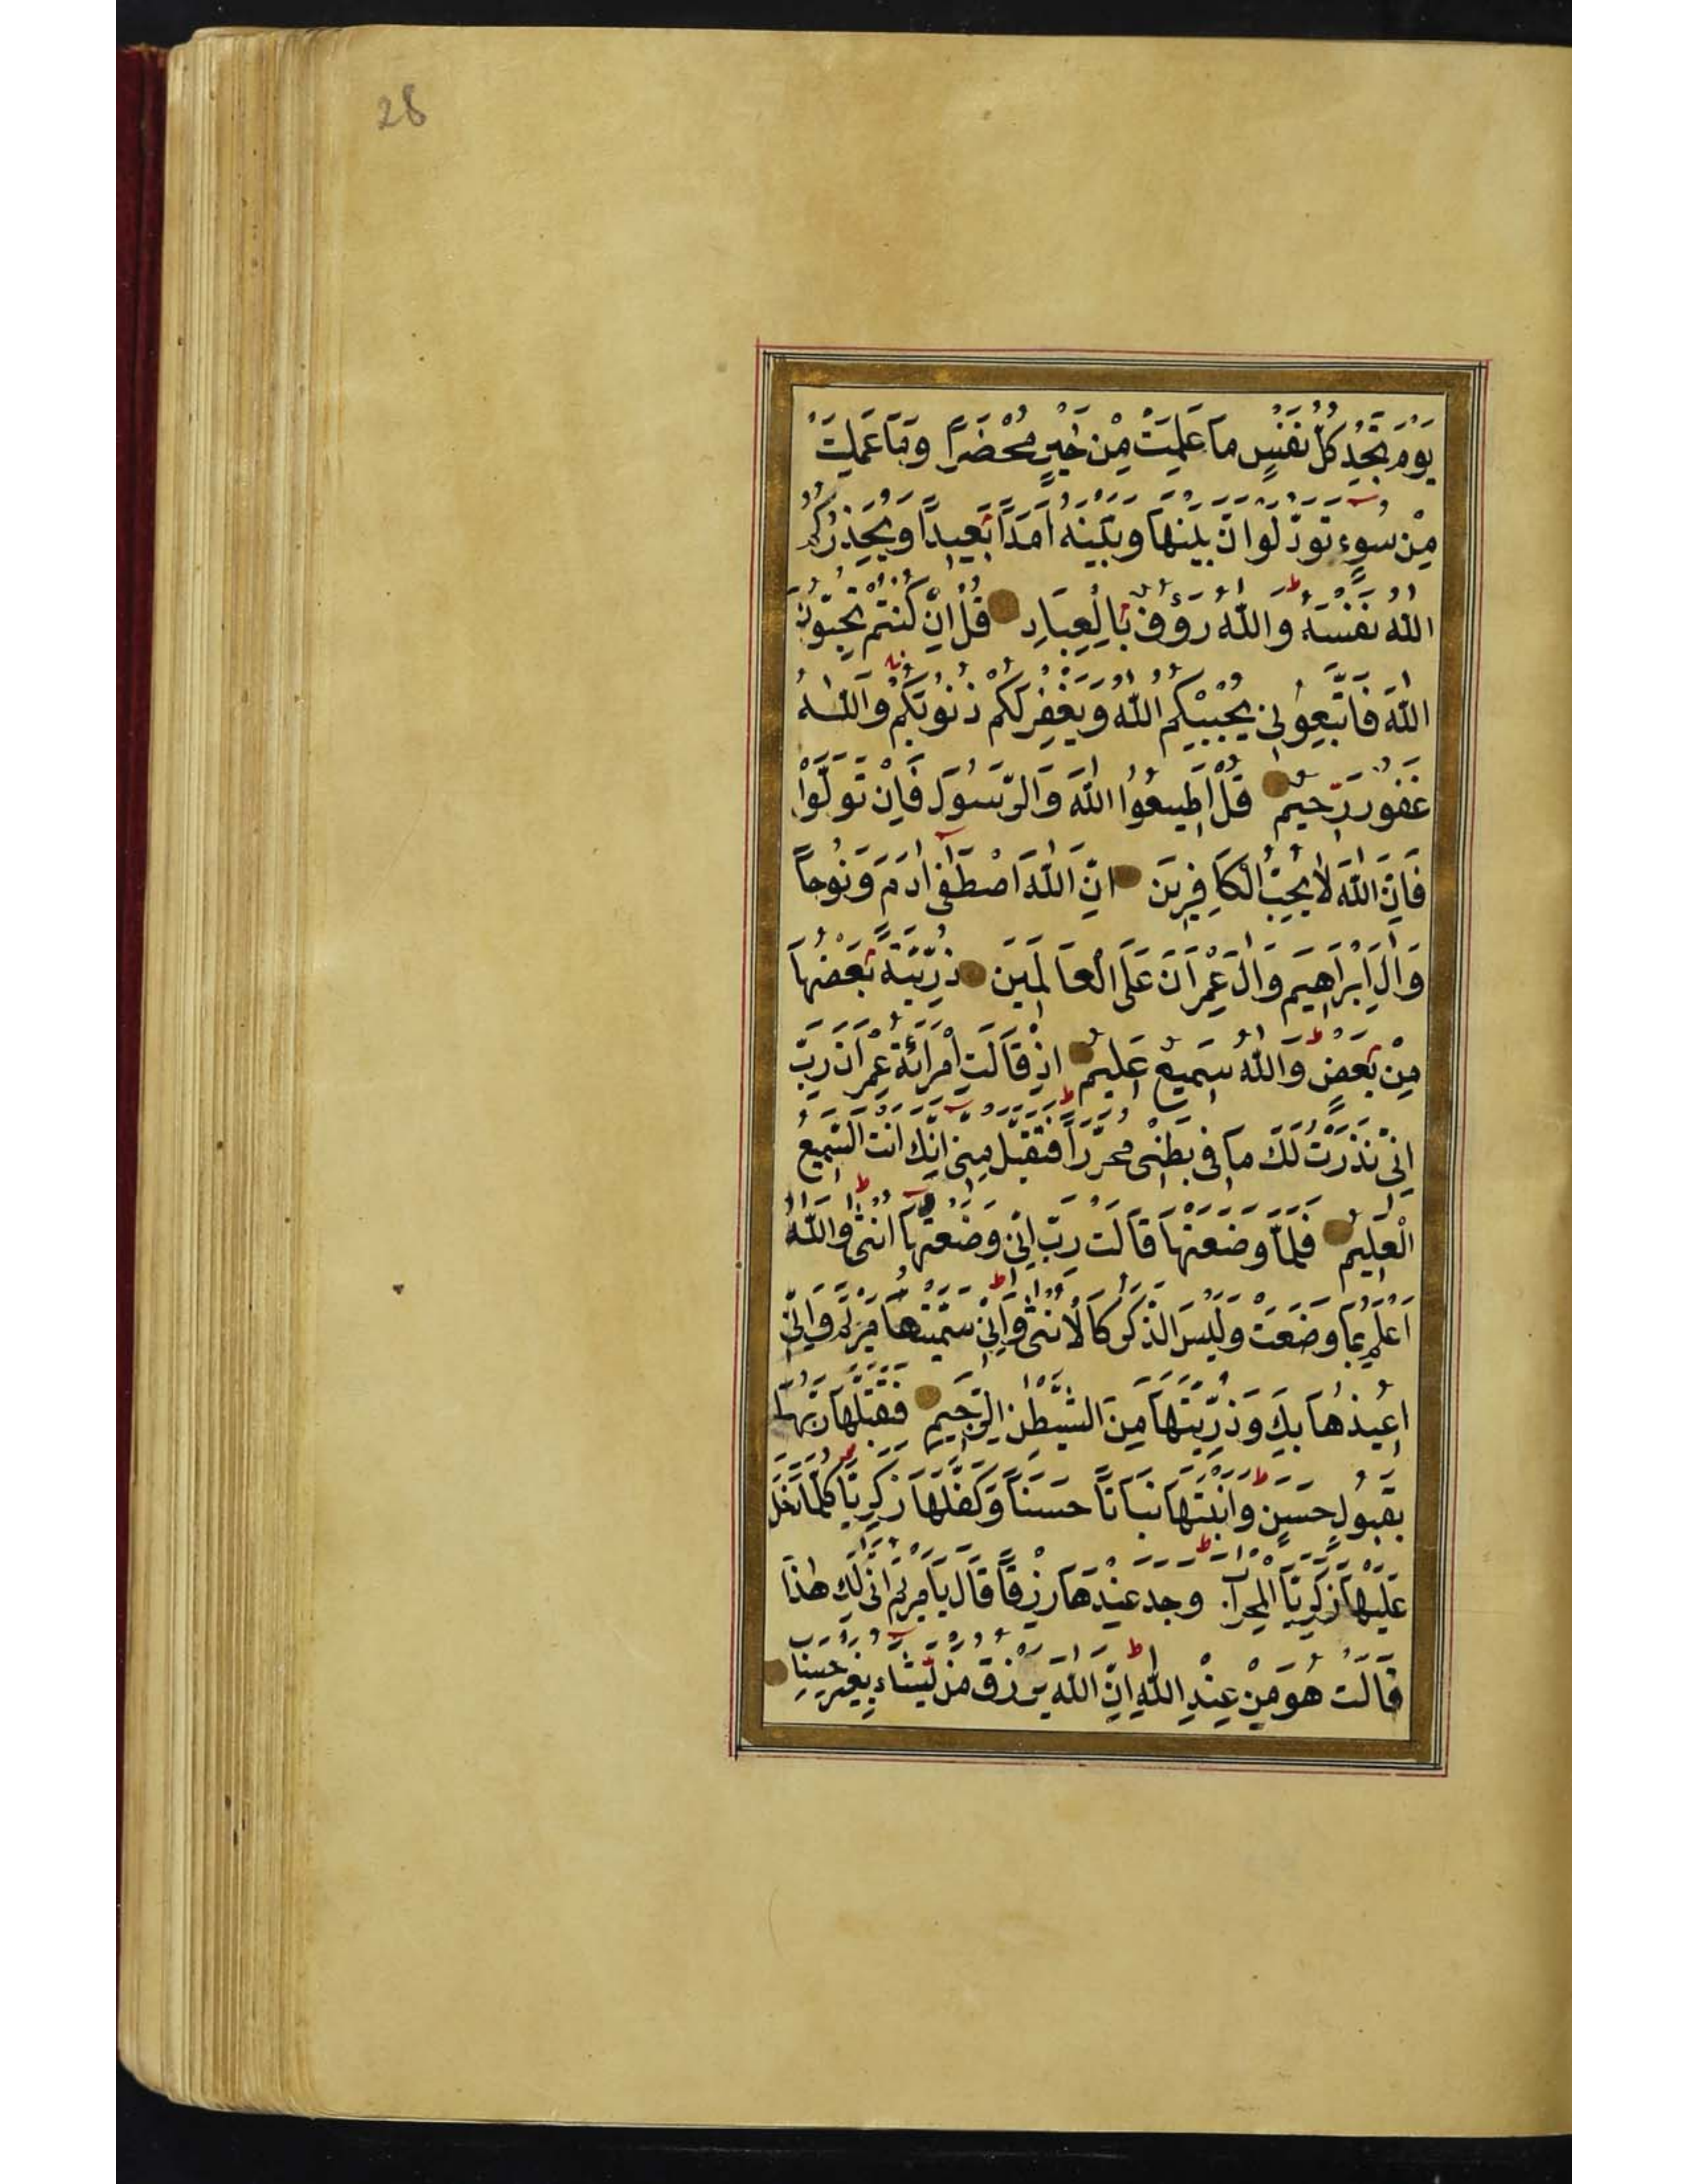 28
يَوْمَ تَجِدُ كُلُّ نَفْسٍ مَا عَمِلَتْ مِنْ خَيْرٍ مُحْضَرًا وَمَا عَمِلَتْ
مِنْ سُوءٍ تَوَدُّ لَوْ اَنَّ بَيْنَهَا وَبَيْنَهُ اَمَدًا بَعِيدًا وَيُحَذِّرُكُمُ
اللهُ نَفْسَهُ وَاللهُ رَؤُفٌ بِالْعِبَادِ قُلْ اِنْ كُنْتُمْ تُحِبُّونَ
اللهَ فَاتَّبِعُونِى يُحْبِبْكُمُ اللهُ وَيَغْفِرْ لَكُمْ ذُنُوبَكُمْ وَاللهُ
غَفُورٌ رَحِيمٌ قُلْ اَطِيعُوا اللهَ وَالرَّسُولَ فَاِنْ تَوَلَّوْا
فَاِنَّ اللهَ لَا يُحِبُّ الْكَافِرِينَ اِنَّ اللهَ اصْطَفٰى اٰدَمَ وَنُوحًا
وَاٰلَ اِبْرَاهِيمَ وَاٰلَ عِمْرَانَ عَلَى الْعَالَمِينَ ذُرِّيَّةً بَعْضُهَا
مِنْ بَعْضٍ وَاللهُ سَمِيعٌ عَلِيمٌ اِذْ قَالَتِ امْرَاَةُ عِمْرَانَ رَبِّ
اِنِّى نَذَرْتُ لَكَ مَا فِى بَطْنِى مُحَرَّرًا فَتَقَبَّلْ مِنِّى اِنَّكَ اَنْتَ السَّمِيعُ
الْعَلِيمُ فَلَمَّا وَضَعَتْهَا قَالَتْ رَبِّ اِنِّى وَضَعْتُهَا اُنْثٰى وَاللهُ
اَعْلَمُ بِمَا وَضَعَتْ وَلَيْسَ الذَّكَرُ كَالْاُنْثٰى وَاِنِّى سَمَّيْتُهَا مَرْيَمَ وَاِنِّى
اُعِيذُهَا بِكَ وَذُرِّيَّتَهَا مِنَ الشَّيْطٰنِ الرَّجِيمِ فَتَقَبَّلَهَا رَبُّهَا
بِقَبُولٍ حَسَنٍ وَاَنْبَتَهَا نَبَاتًا حَسَنًا وَكَفَّلَهَا زَكَرِيَّا كُلَّمَا دَخَلَ
عَلَيْهَا زَكَرِيَّا الْمِحْرَابَ وَجَدَ عِنْدَهَا رِزْقًا قَالَ يَا مَرْيَمُ اَنّٰى لَكِ هٰذَا
قَالَتْ هُوَ مِنْ عِنْدِ اللهِ اِنَّ اللهَ يَرْزُقُ مَنْ يَشَاءُ بِغَيْرِ حِسَابٍ